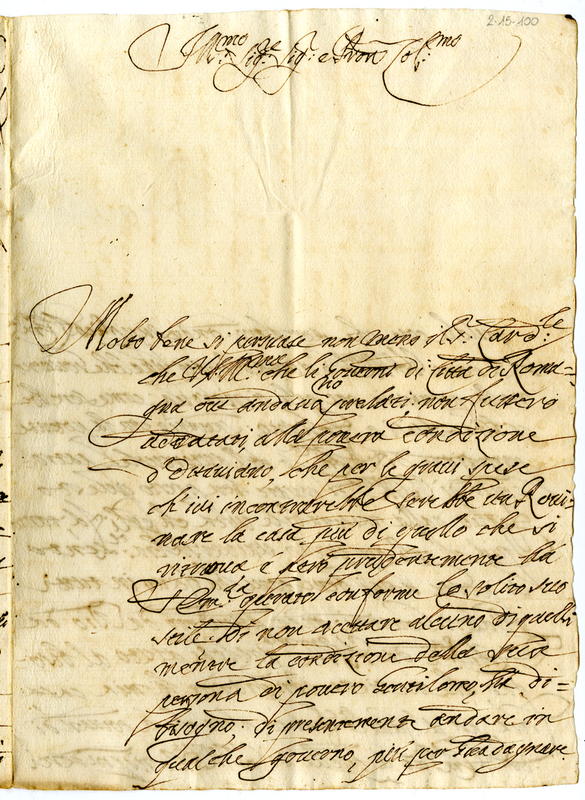 2-15-100
Ill.mo Sig.re Sig.r e Pron Col.mo
Molto bene si persuase non meno il S.r Card.le
che che li governi di Città di Roma=
gna ove andavano prelati, non fussero
adattati, alla povera condizione
d'Ottaviano, che per le gravi spese
ch'ivi incontrarebbe sarebbe un Rovi=
nare la casa più di quello che si
ritrova e però prudentemente ha
operato conforme le solito suo
stile di non accettare alcuno di quelli
mentre la condizione della sua
persona di povero gentilomo, ha di=
bisogno di presentemente andare in
qualche governo, più per guadagnare